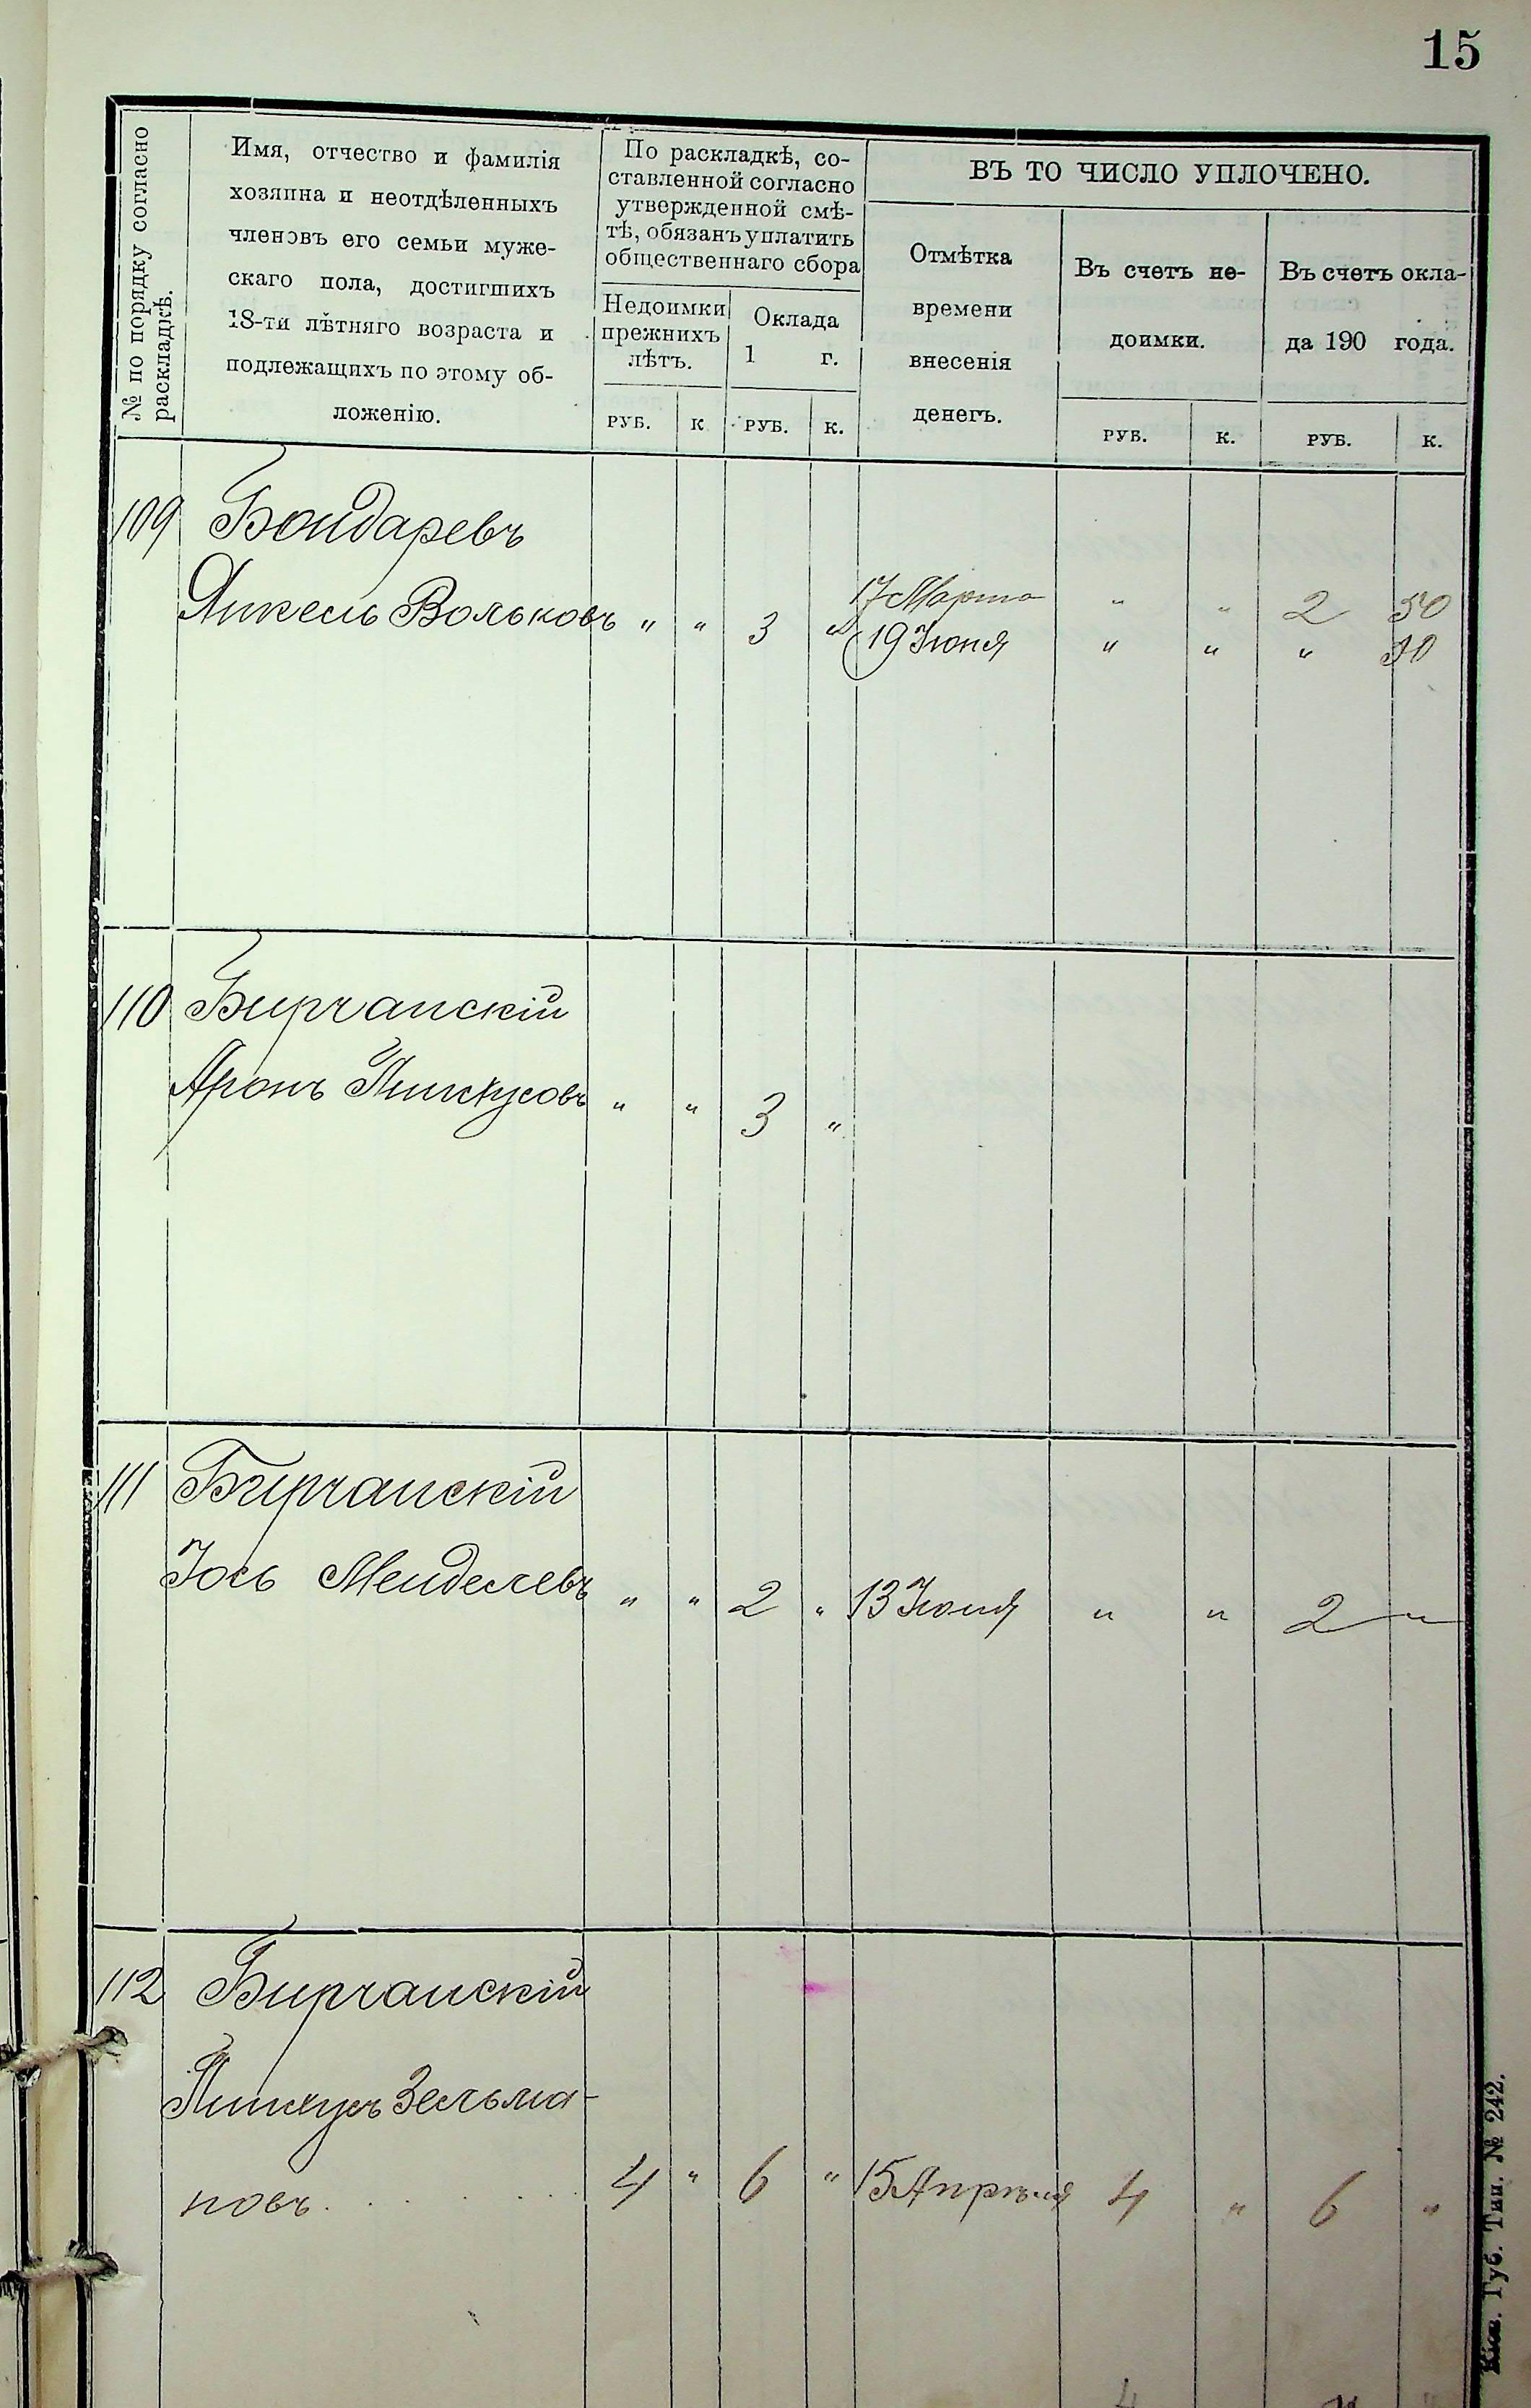 15
№ по порядку согласно
раскладкѣ.
Имя, отчество и фамилія
хозяина и неотдѣленныхъ
членовъ его семьи муже-
скаго пола, достигшихъ
18-ти лѣтняго возраста и
подлежащихъ по этому об-
ложенію.
По раскладкѣ, со-
ставленной согласно
утвержденной смѣ-
тѣ, обязанъ уплатить
общественнаго сбора
Недоимки
прежнихъ
лѣтъ.
Оклада
1 г.
ВЪ ТО ЧИСЛО УПЛОЧЕНО.
Отмѣтка
времени
внесенія
денегъ.
Въ счетъ не-
доимки.
Въ счетъ окла-
да 190 года.
РУБ. К РУБ. К. РУБ. К. РУБ. К.
109 Бондаревъ
17 Марта " " 2 50
Янкель Вольковъ " " 3 "
19 Іюня " " " 50
110 Бирчанскій
Аронъ Пинхусовъ " " 3 "
111 Бирчанскій
Іось Менделевъ " " 2 " 13 Іюня " " 2 "
112 Бирчанскій
Пинхусъ Зельма-
новъ. 4 " 6 " 15 Апрѣля 4 " 6 "
4 "
Кіев. Губ. Тип. № 242.